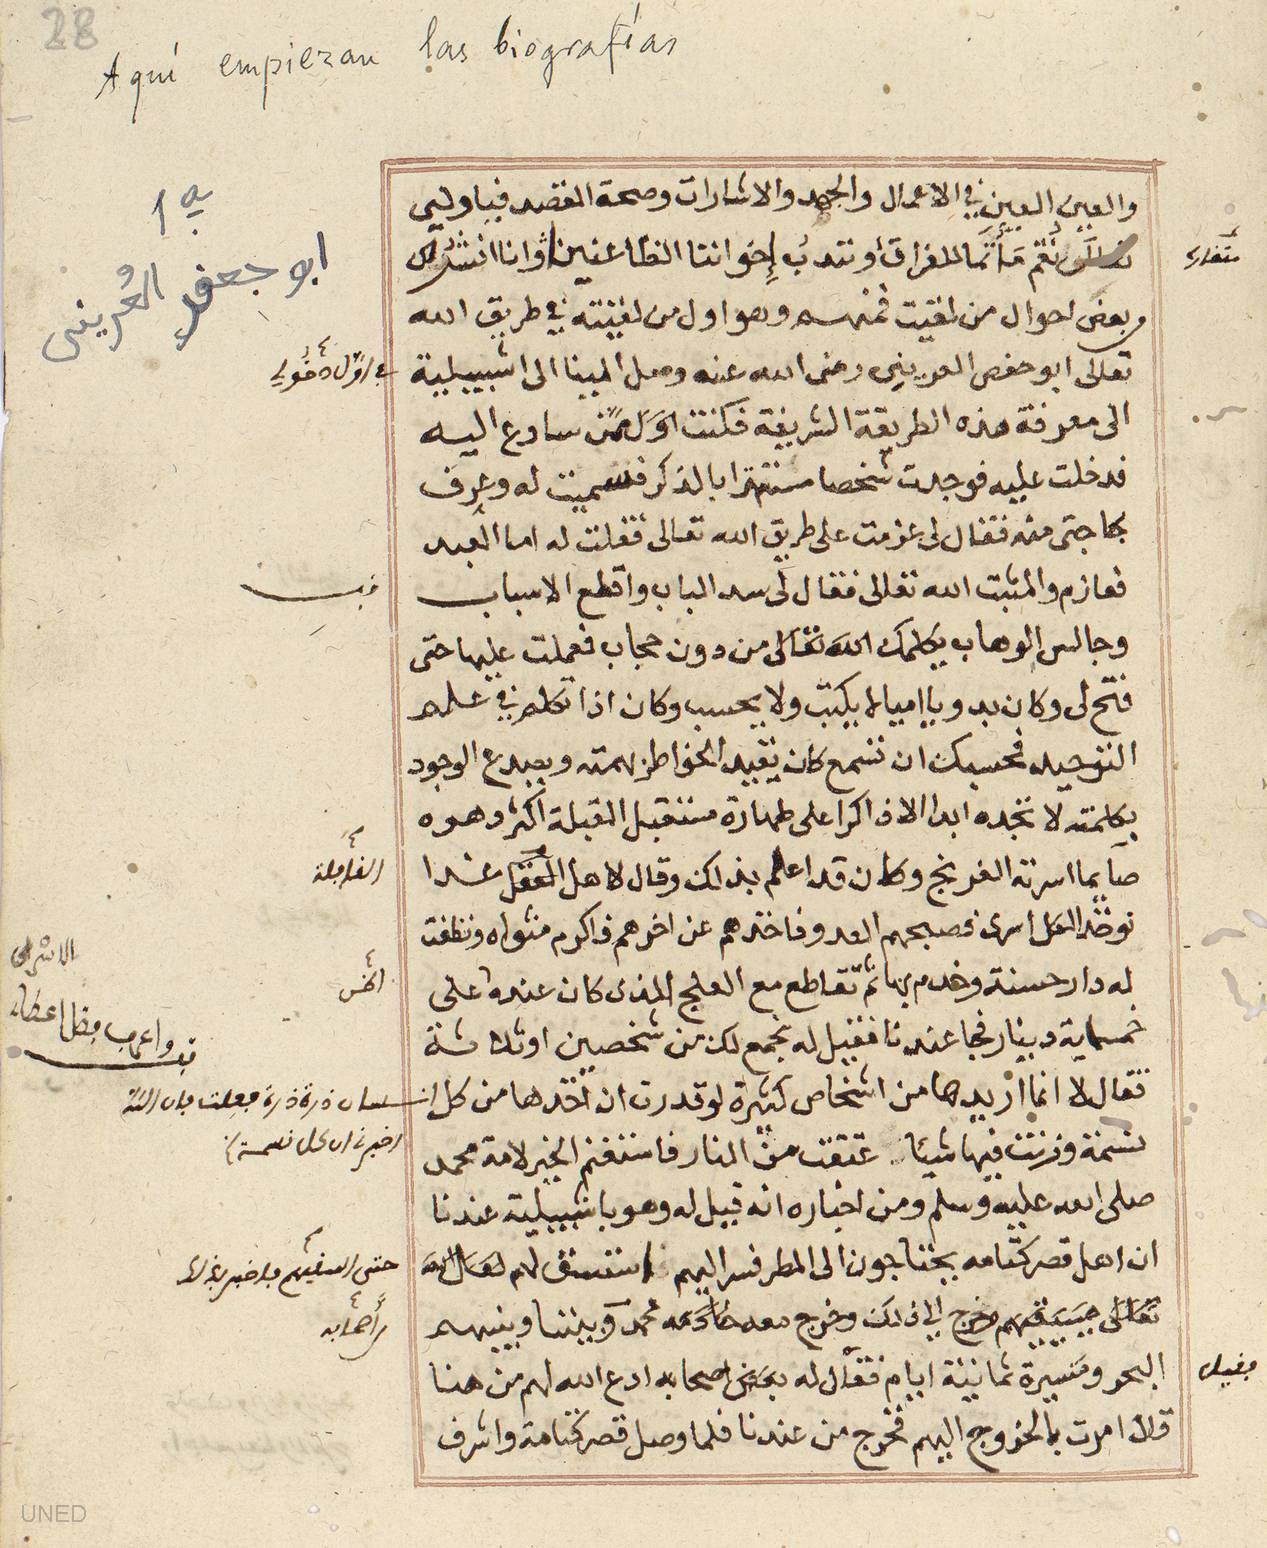 28
Aquí empiezan las biografías
١ يه
ابو جعفر العُريني
والعين العين في الاعمال والجهد والاشارات وصحة القصد فياوليي
نقم مأتما للفراق أو نندب إخواننا الظاعنين وانا انشر لك
وبعض احوال من لقيت فمنهم وهو اول من لقيته في طريق الله
تعالى ابو جعفر العريني رضى الله عنه وصل الينا الى اشبيلية
في اوّل دخولي
الى معرفة هذه الطريقة الشريفة فكنت اوّل من سارع اليه
فدخلت عليه فوجدت شخصا مستهترا بالذكر فسميت له وعرف
بحاجتى منه فقال لى عزمت على طريق الله تعالى فقلت له اما العبد
فعازم والمثبت الله تعالى فقال لى سد الباب واقطع الاسباب
وجالس الوهاب يكلمك الله تعالى من دون حجاب فعملت عليها حتى
فتح لى وكان بدويا اميا لا يكتب ولا يحسب وكان اذا تكلم في علم
التوحيد فحسبك ان تسمع كان يقيد الخواطر بهمته ويصدع الوجود
بكلمته لا تجده ابدا الا ذاكرا على طهارة مستقبل القبلة اكثر دهره
صايما اسرته الفرنج وكان قد اعلم بذلك وقال لاهل القفل غدا
القافلة
نوخذ الكل اسرى فصبحهم العدو فاخذهم عن اخرهم فاكرم مثواه ونظفت
له دار حسنة وخدم بها ثم تقاطع مع العلج الذى كان عنده على
خمسماية دينار فجا عندنا فقيل له نجمع لك من شخصين او ثلاثة
فقال لا انما اريدها من اشخاص كثيرة لو قدرت ان آخذها من كل انسان ذرة ذرة فعلت فان الله
اخبرنى ان كل نسمة
نسمة وزنت فيها شيئا عتقت من النار فاستغنم الخير لامة محمد
صلى الله عليه وسلم ومن اخباره انه قيل له وهو باشبيلية عندنا
ان اهل قصر كتامه يحتاجون الى المطر فسر اليهم استسق لهم لعل الله
تعالى يسقيهم فخرج الى ذلك وخرج معه خادمه محمد وبيننا وبينهم
البحر ومسيرة ثمانية ايام فقال له بعض اصحابه ادع الله لهم من هنا
فقيل
قال امرت بالخروج اليهم فخرج من عندنا فلما وصل قصر كتامة واشرف
UNED